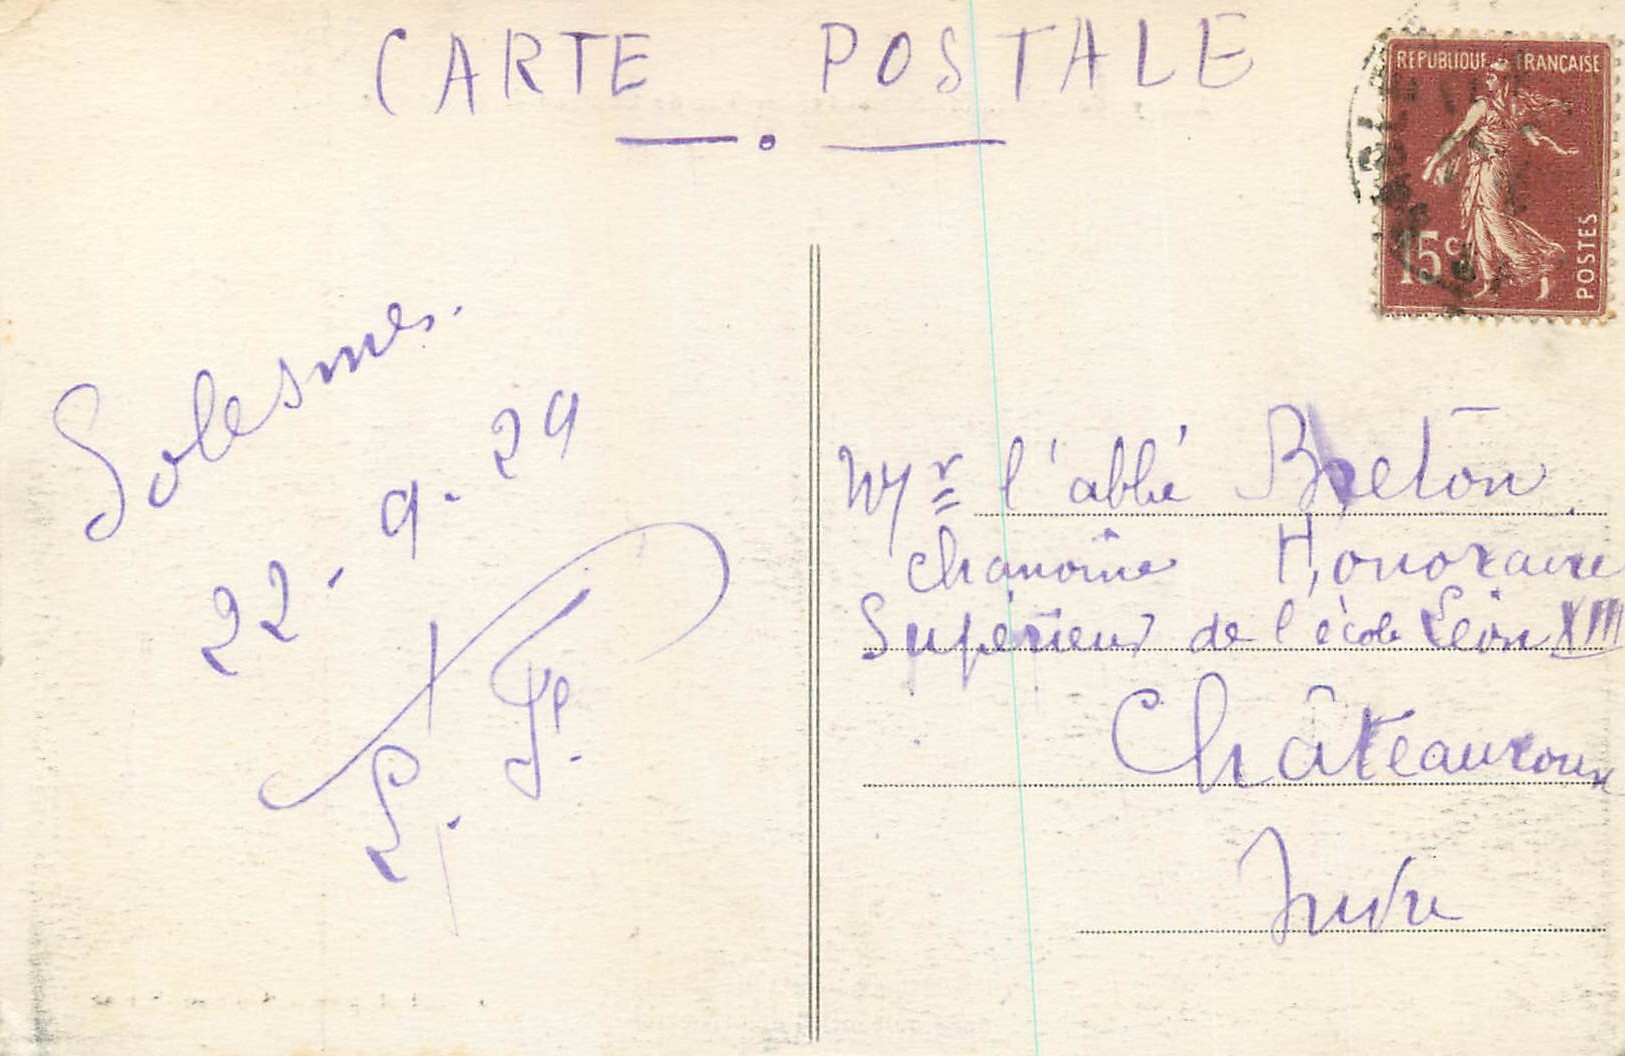 CARTE POSTALE
Solesmes.
22-9-29
Mr l'abbé Breton
chanoine Honoraire
Supérieur de l'école Léon XIII
Châteauroux
Indre
REPUBLIQUE FRANÇAISE
15c
POSTES